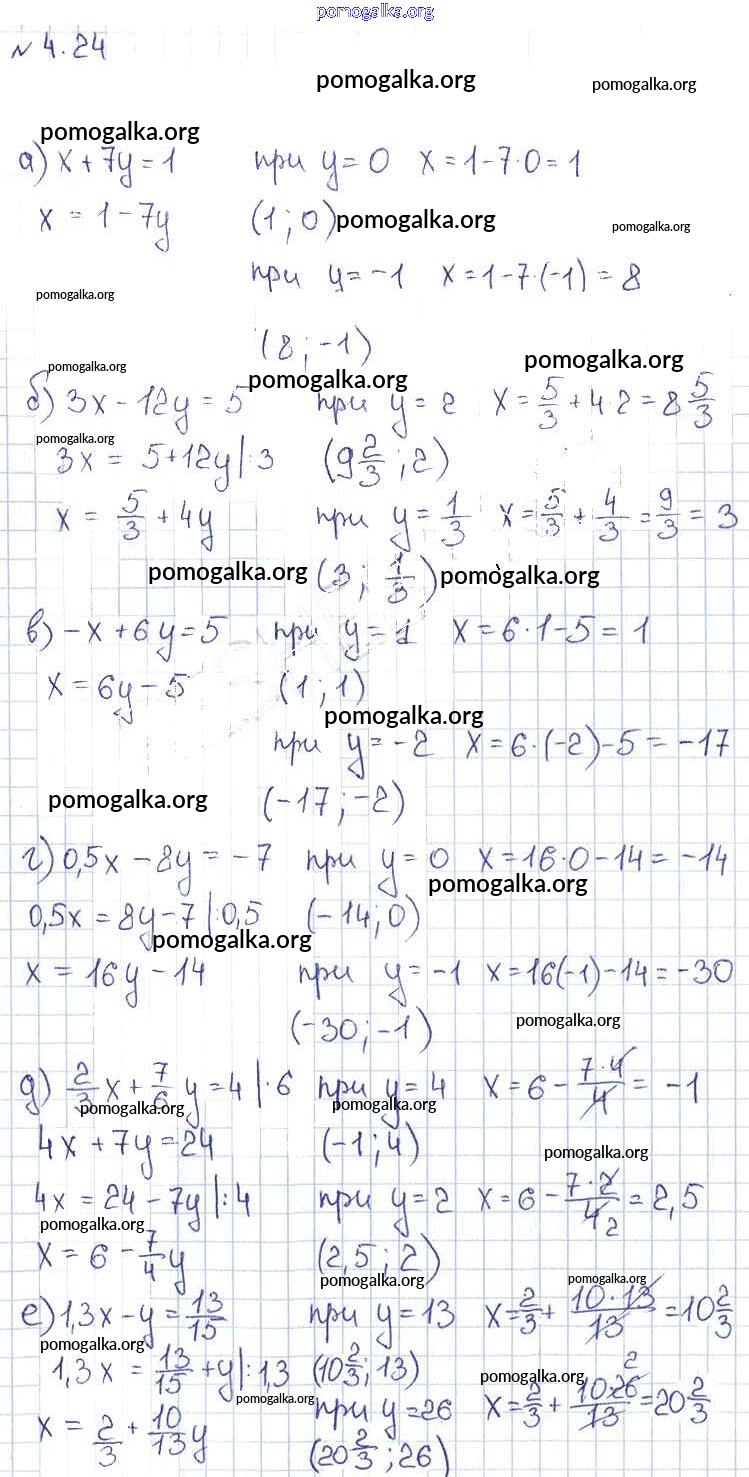 pomogalka.org
№ 4.24
pomogalka.org pomogalka.org
pomogalka.org
а) x + 7y = 1 при y = 0 x = 1 - 7·0 = 1
x = 1 - 7y (1; 0) pomogalka.org pomogalka.org
при y = -1 x = 1 - 7·(-1) = 8
pomogalka.org
(8; -1)
pomogalka.org pomogalka.org pomogalka.org
б) 3x - 12y = 5 при y = 2 x = 5/3 + 4·2 = 8 5/3
pomogalka.org
3x = 5 + 12y |: 3 (9 2/3; 2)
x = 5/3 + 4y при y = 1/3 x = 5/3 + 4/3 = 9/3 = 3
pomogalka.org (3; 1/3) pomogalka.org
в) -x + 6y = 5 при y = 1 x = 6·1 - 5 = 1
x = 6y - 5 (1; 1)
pomogalka.org
при y = -2 x = 6·(-2) - 5 = -17
pomogalka.org (-17; -2)
г) 0,5x - 8y = -7 при y = 0 x = 16·0 - 14 = -14
pomogalka.org
0,5x = 8y - 7 |: 0,5 (-14; 0)
pomogalka.org
x = 16y - 14 при y = -1 x = 16(-1) - 14 = -30
(-30; -1) pomogalka.org
д) 2/3 x + 7/6 y = 4 |·6 при y = 4 x = 6 - 7·4/4 = -1
pomogalka.org pomogalka.org
4x + 7y = 24 (-1; 4)
pomogalka.org
4x = 24 - 7y |: 4 при y = 2 x = 6 - 7·2/4 2 = 2,5
pomogalka.org
x = 6 - 7/4 y (2,5; 2)
pomogalka.org pomogalka.org
е) 1,3x - y = 13/15 при y = 13 x = 2/3 + 10·13/13 = 10 2/3
pomogalka.org
1,3x = 13/15 + y |: 1,3 (10 2/3; 13)
pomogalka.org pomogalka.org
x = 2/3 + 10/13 y при y = 26 x = 2/3 + 10·26 2/13 = 20 2/3
(20 2/3; 26)